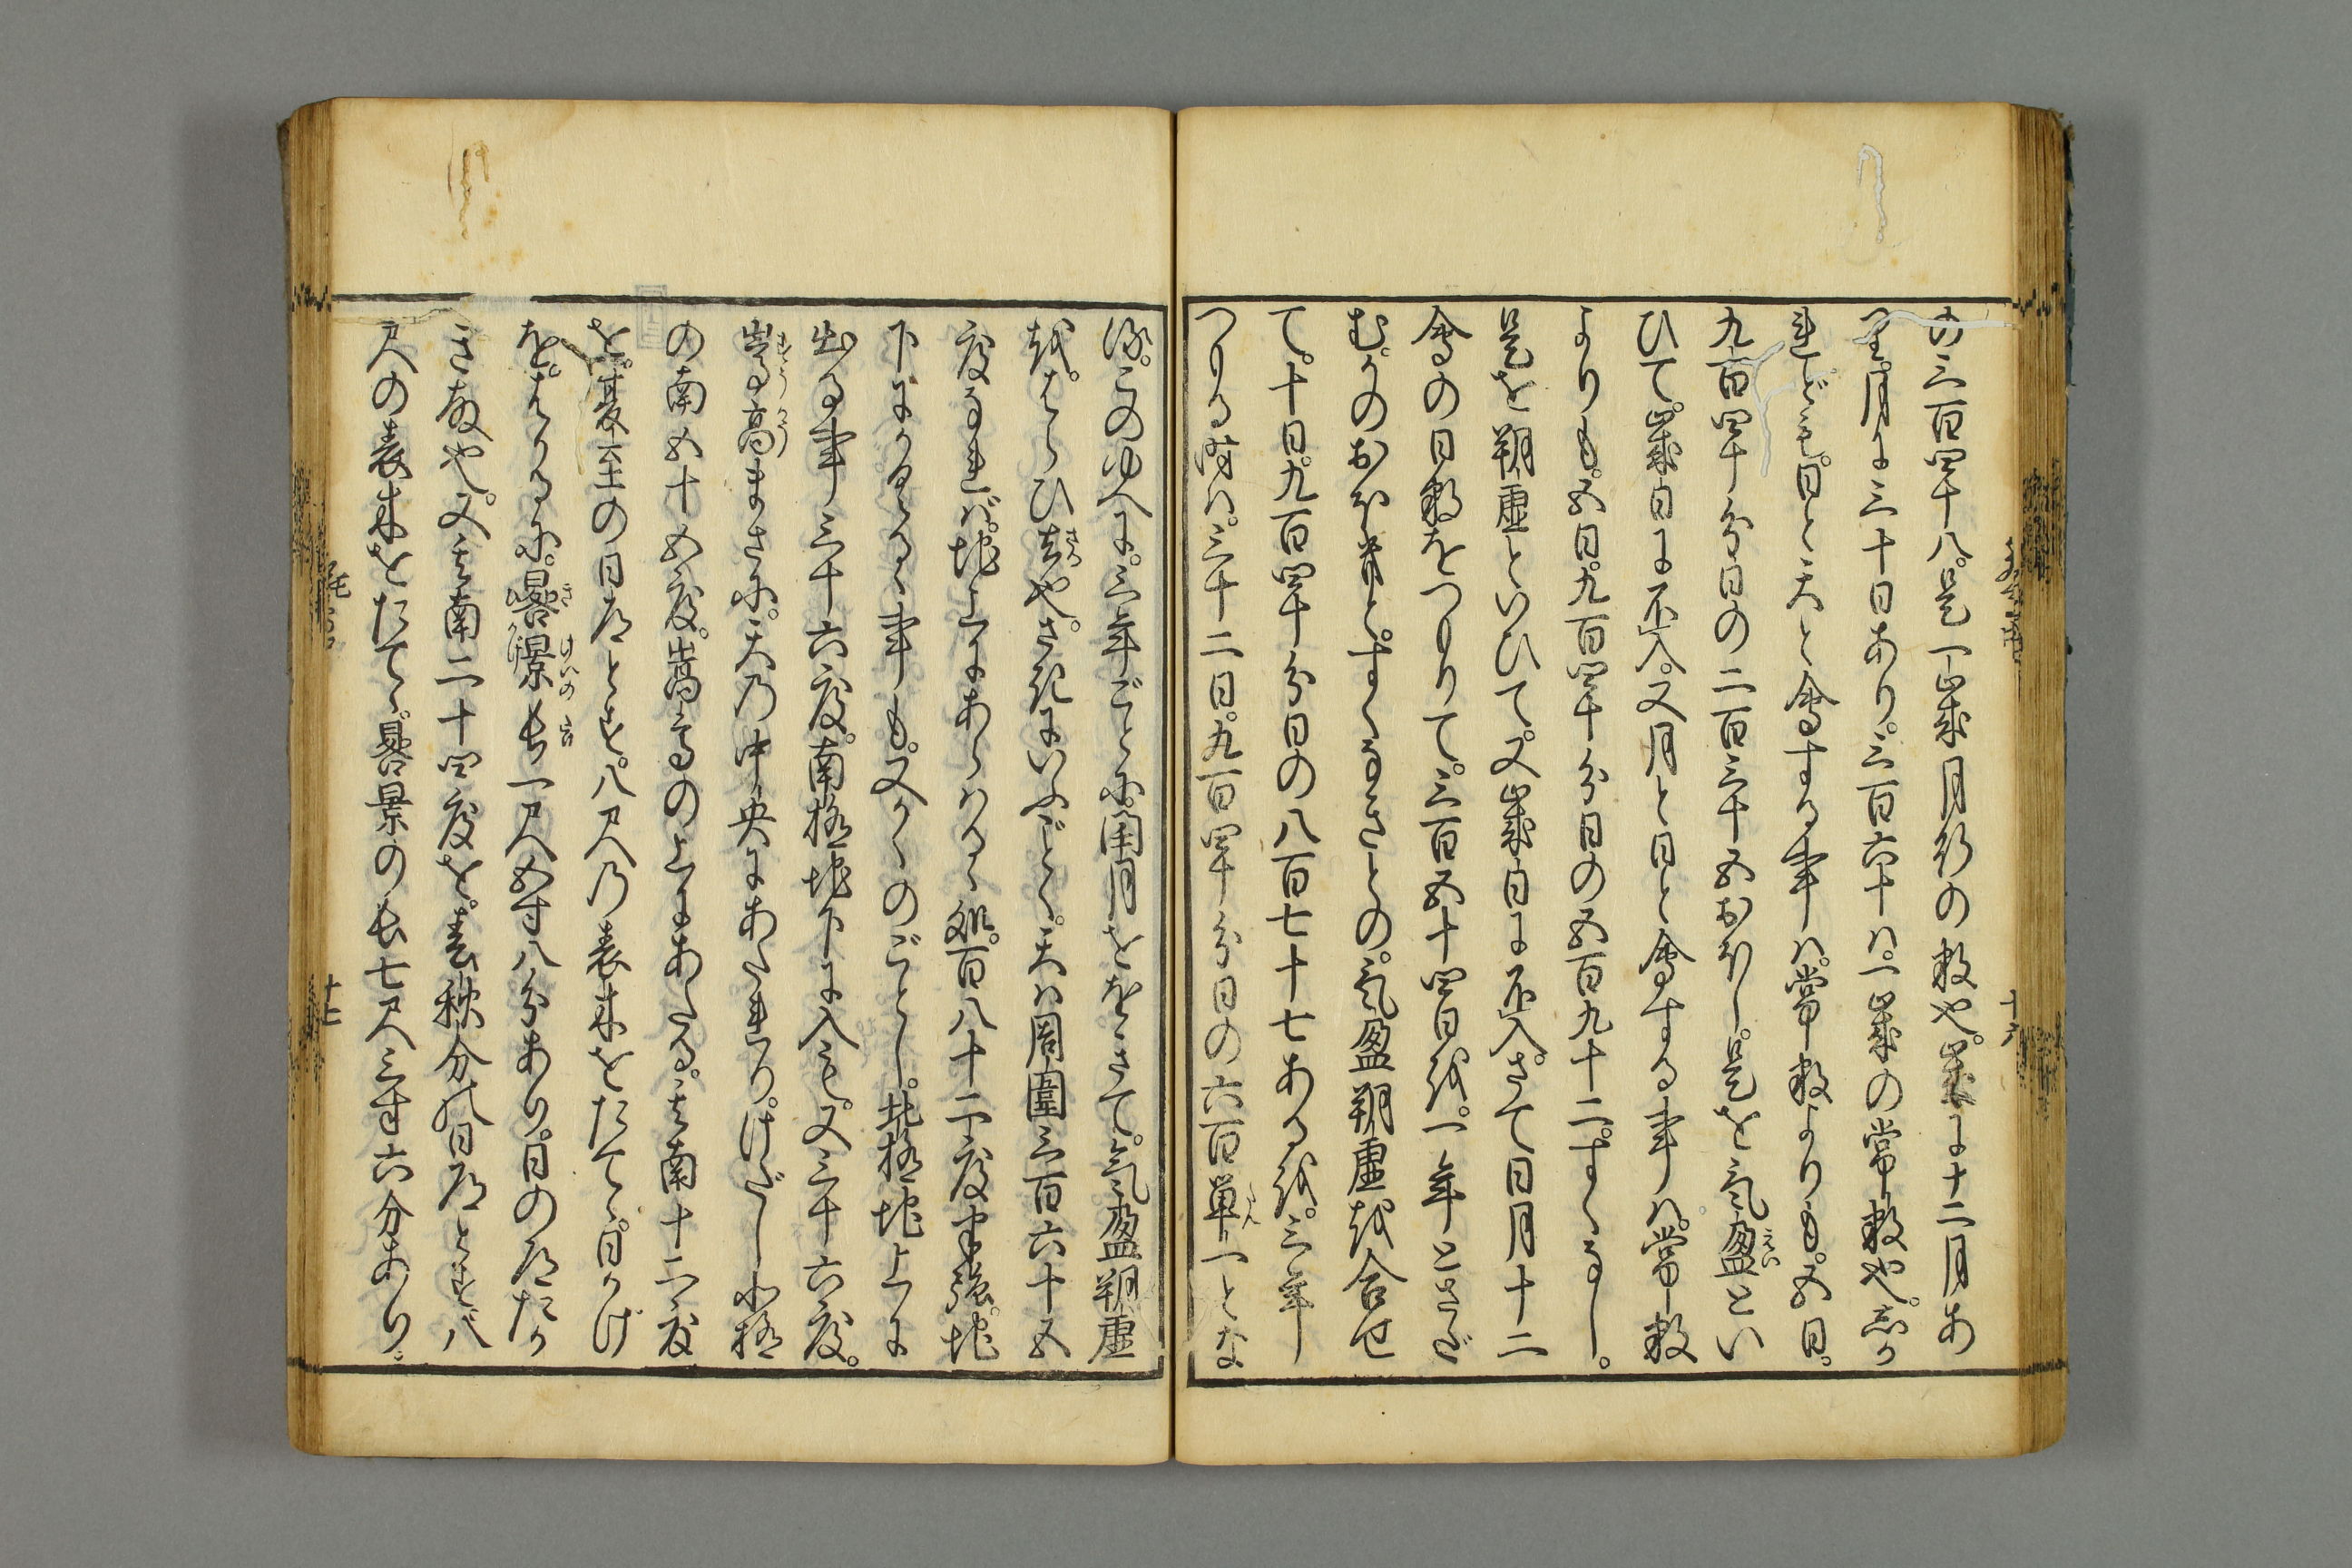 の三百四十八。是一歳月行の数也。歳に十二月あ
り。月に三十日あり。三百六十ハ。一歳の常数也。志か
れども。日と天と會する事ハ。常数よりも。五日。
九百四十分日の二百三十五おほし。是を気盈とい
ひて。歳自に不入。又月と日と會する事ハ。常数
よりも。五日。九百四十分日の五百九十二。すくなし。
是を朔虚といひて。又歳自に不入。さて日月十二
會の日数をつもりて。三百五十四日を。一年とさだ
む。かのおほきと。すくなきとの。気盈朔虚を合せ
て。十日。九百四十分日の八百七十七ある を。三年
つもる時ハ。三十二日。九百四十分日の六百単一とな
る。このゆへに。三年ごとに。閏月ををきて。気盈朔虚
を。はらひ去也。さきにいふごとく。天ハ周圍三百六十五
度なれバ。地上にあらハるゝ処。百八十二度半強。地
下にかくるゝ事も。又かくのごとし。北極地上に
出る事三十六度。南極地下に入も。又三十六度。
嵩高まさに。天乃中央にあたれり。けだし北極
の南五十五度。嵩高の上にあたる。其南十二度
を。夏至の日道とす。八尺乃表木をたてゝ。日かげ
をはかるに。晷景長一尺五寸八分あり。日の道たか
き故也。又其南二十四度を。春秋分の日道とす。八
尺の表木をたてゝ。晷景の長七尺三寸六分あり。
十六
十七